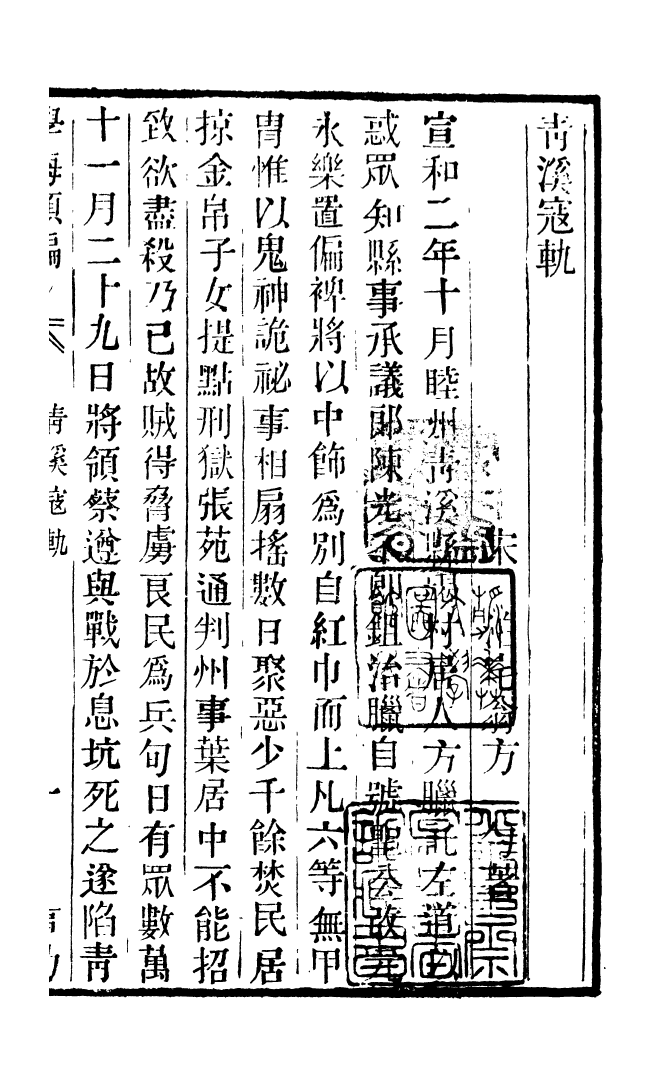 青溪寇軌
宋 泊宅翁方 勺著
宣和二年十月睦州青溪縣村居人方臘託左道以
惑眾知縣事承議郎陳光不即鉏治臘自號聖公改元
永樂置偏裨將以巾飾為別自紅巾而上凡六等無甲
胄惟以鬼神詭祕事相扇搖數日聚惡少千餘焚民居
掠金帛子女提點刑獄張苑通判州事葉居中不能招
致欲盡殺乃已故賊得脅虜良民為兵旬日有眾數萬
十一月二十九日將領蔡遵與戰於息坑死之遂陷青
學海類編
青溪寇軌
一